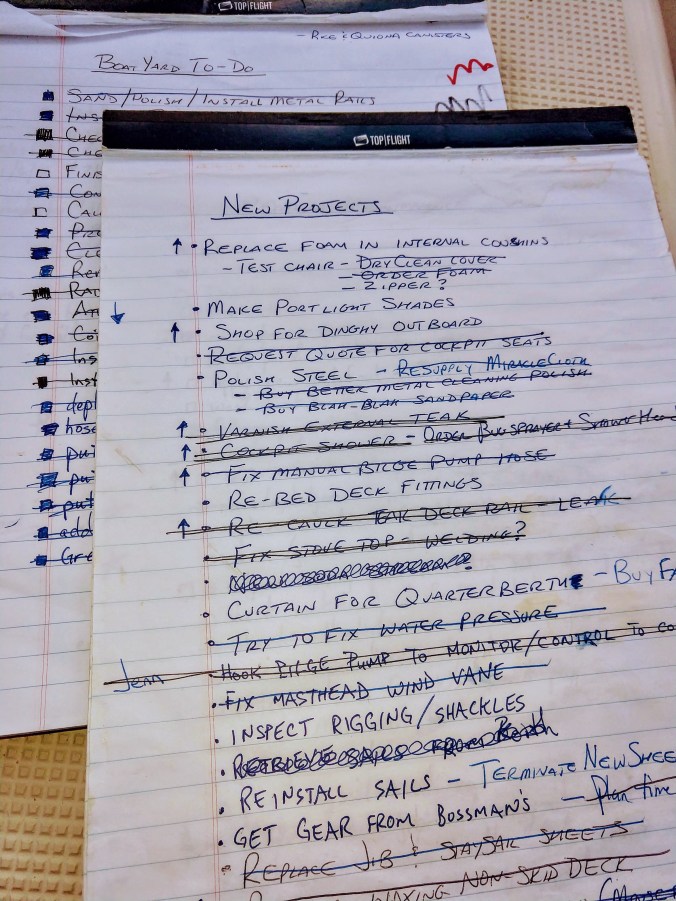 TOP|FLIGHT
- RICE & QUIONA CANISTERS
BOAT YARD TO-DO
SAND/POLISH/INSTALL METAL RAILS
INS
CHE
CHE
FIN
CON
CAL
CLE
RAT
INS
INST
depl
hose
pu
pu
put
add
Gre
TOP|FLIGHT
NEW PROJECTS
↑ • REPLACE FOAM IN INTERNAL COUSHINS
- TEST CHAIR - DRY CLEAN COVER
- ORDER FOAM
- ZIPPER?
↓ • MAKE PORTLIGHT SHADES
↑ • SHOP FOR DINGHY OUTBOARD
• REQUEST QUOTE FOR COCKPIT SEATS
• POLISH STEEL - RESUPPLY MIRACLE CLOTH
- BUY BETTER METAL CLEANING POLISH
- BUY BLAH-BLAH SANDPAPER
↑ • VARNISH EXTERNAL TEAK
↑ • COCKPIT SHOWER - ORDER BUG SPRAYER + SHOWER HEAD
↑ • FIX MANUAL BILGE PUMP HOSE
• RE-BED DECK FITTINGS
↑ • RE CAULK TEAK DECK RAIL - LEAK
• FIX STOVE TOP - WELDING?
• CURTAIN FOR QUARTERBERTH - BUY FA
• TRY TO FIX WATER PRESSURE
Jenn • HOOK BILGE PUMP TO MONITOR/CONTROL TO CO
• FIX MASTHEAD WIND VANE
• INSPECT RIGGING/SHACKLES
• RETRIEVE SAILS FROM
• REINSTALL SAILS - TERMINATE NEW SHEE
• GET GEAR FROM BOSSMAN'S - Plan time
• REPLACE JIB & STAYSAIL SHEETS
WAXING NON-SKID DECK